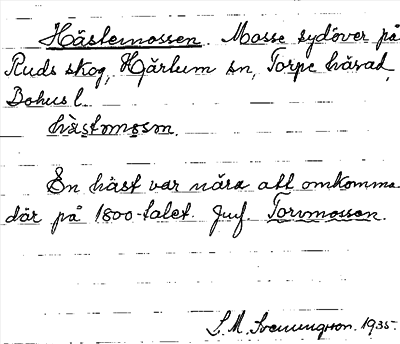 Hästemossen. Mosse sydöver på
Ruds skog, Hjärtum sn, Torpe härad,
Bohus l.
hàstəmɔsən.
En häst var nära att omkomma
där på 1800-talet. Jmf. Torvmossen.
S. M. Svenungsson. 1935.